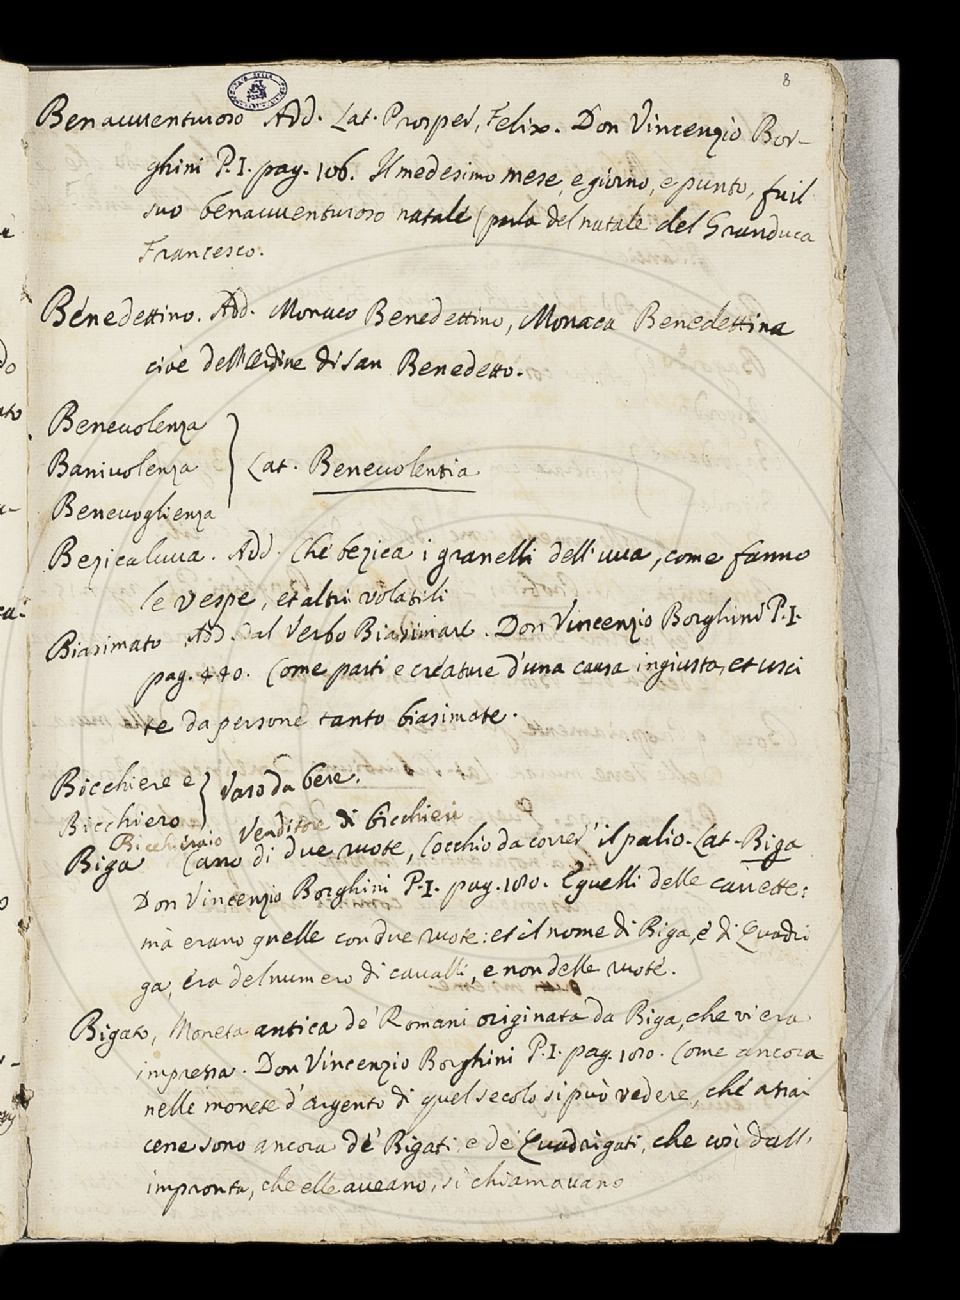 8
Benauuenturoso Add. Lat. Prosper, Felix. Don Vincenzio Bor-
ghini P.I. pag. 106. Il medesimo mese, e giorno, e punto, fu il
suo benauuenturoso natale (parla del natale del Granduca
Francesco.
Benedettino. Add. Monaco Benedettino, Monaca Benedettina
cioè dell'Ordine di San Benedetto.
Beneuolenza
Baniuolenza } Lat. Beneuolentia
Beneuoglienza
Bezicaluua. Add. Che bezica i granelli dell'uua, come fanno
le vespe, et altri volatili
Biasimato Add. dal Verbo Biasimare. Don Vincenzio Borghini P.I.
pag. 440. Come parti e creature d'una causa ingiusta, et usci
te da persone tanto biasimate.
Bicchiere e } Vaso da bere.
Bicchiero
Bicchieraio Venditore di bicchieri
Biga Carro di due ruote, Cocchio da correr' il palio. Lat. Biga
Don Vincenzio Borghini P.I. pag. 180. E quelli delle carrette:
mà erano quelle con due ruote: et il nome di Biga, e di Quadri
ga, era del numero di caualli, e non delle ruote.
Bigato, Moneta antica de' Romani originata da Biga, che vi era
impressa. Don Vincenzio Borghini P.I. pag. 180. Come ancora
nelle monete d'argento di quel secolo si può vedere, che assai
cene sono ancora de' Bigati e de' Quadrigati, che così dall'
impronta, che elle aueano, si chiamauano